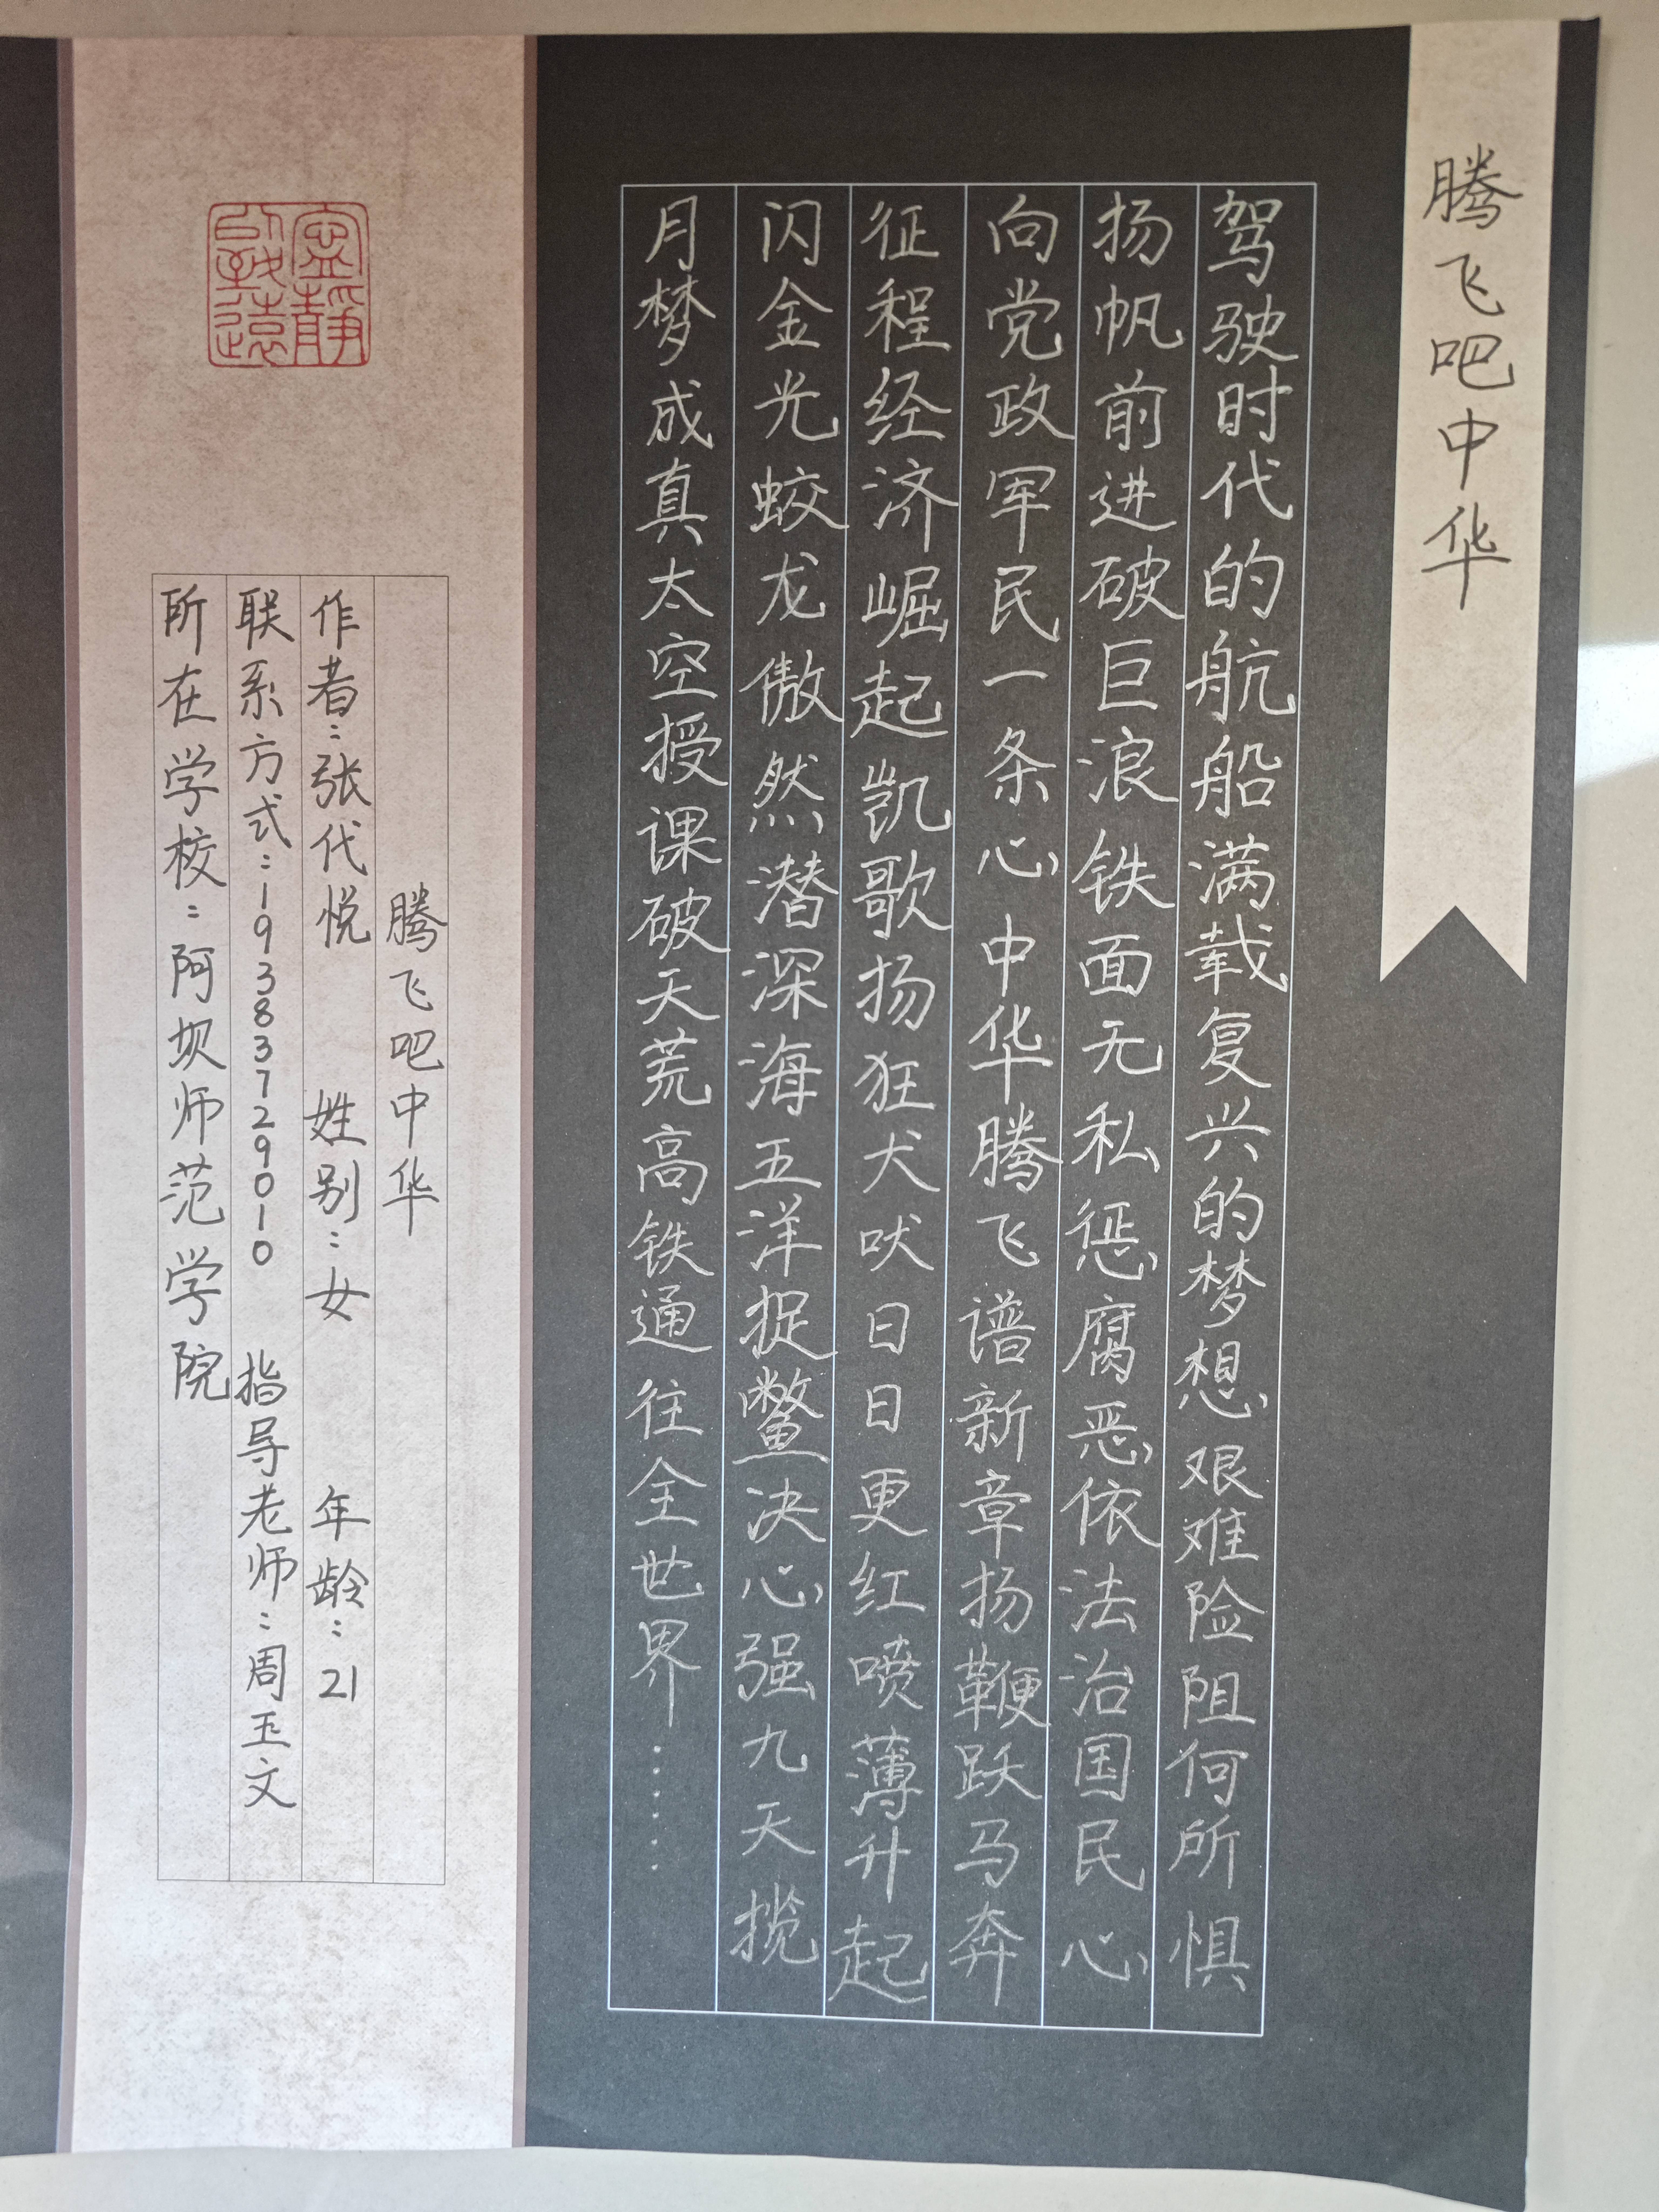 腾飞吧中华
驾驶时代的航船满载复兴的梦想艰难险阻何所惧
扬帆前进破巨浪铁面无私惩腐恶依法治国民心
向党政军民一条心中华腾飞谱新章扬鞭跃马奔
征程经济崛起凯歌扬狂犬吠日日更红喷薄升起
闪金光蛟龙傲然潜深海五洋捉鳖决心强九天揽
月梦成真太空授课破天荒高铁通往全世界……
腾飞吧中华
作者：张代悦 姓别：女 年龄：21
联系方式：19383729010 指导老师：周玉文
所在学校：阿坝师范学院
寧靜
致遠